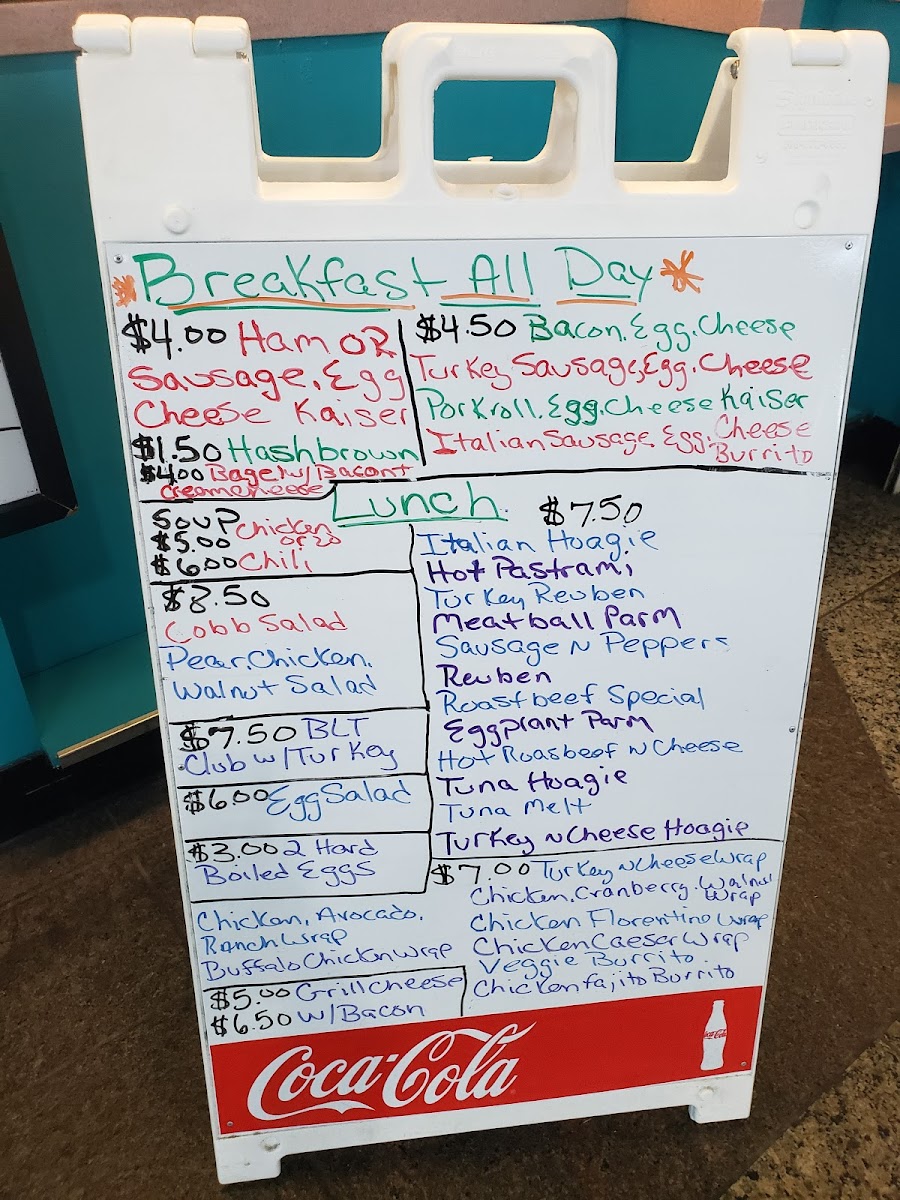 *Breakfast All Day*
$4.00 Ham OR
Sausage, Egg
Cheese Kaiser
$1.50 Hashbrown
$4.00 Bagel w/Bacon+
creamcheese
$4.50 Bacon, Egg, Cheese
Turkey Sausage, Egg, Cheese
Porkroll, Egg, Cheese Kaiser
Italian Sausage Egg, Cheese
Burrito
Lunch
Soup Chicken
$5.00 orzo
$6.00 Chili
$8.50
Cobb Salad
Pear, Chicken,
Walnut Salad
$7.50 BLT
Club w/Turkey
$6.00 Egg Salad
$3.00 2 Hard
Boiled Eggs
$7.50
Italian Hoagie
Hot Pastrami
Turkey Reuben
Meatball Parm
Sausage N Peppers
Reuben
Roastbeef Special
Eggplant Parm
Hot Roasbeef N Cheese
Tuna Hoagie
Tuna Melt
Turkey N Cheese Hoagie
$7.00 Turkey N Cheese Wrap
Chicken, Cranberry, Walnut
Wrap
Chicken Florentino Wrap
Chicken Caeser Wrap
Veggie Burrito
Chicken fajito Burrito
Chicken, Avocado,
Ranch Wrap
Buffalo Chicken Wrap
$5.00 Grill Cheese
$6.50 w/Bacon
Coca-Cola
Coca-Cola